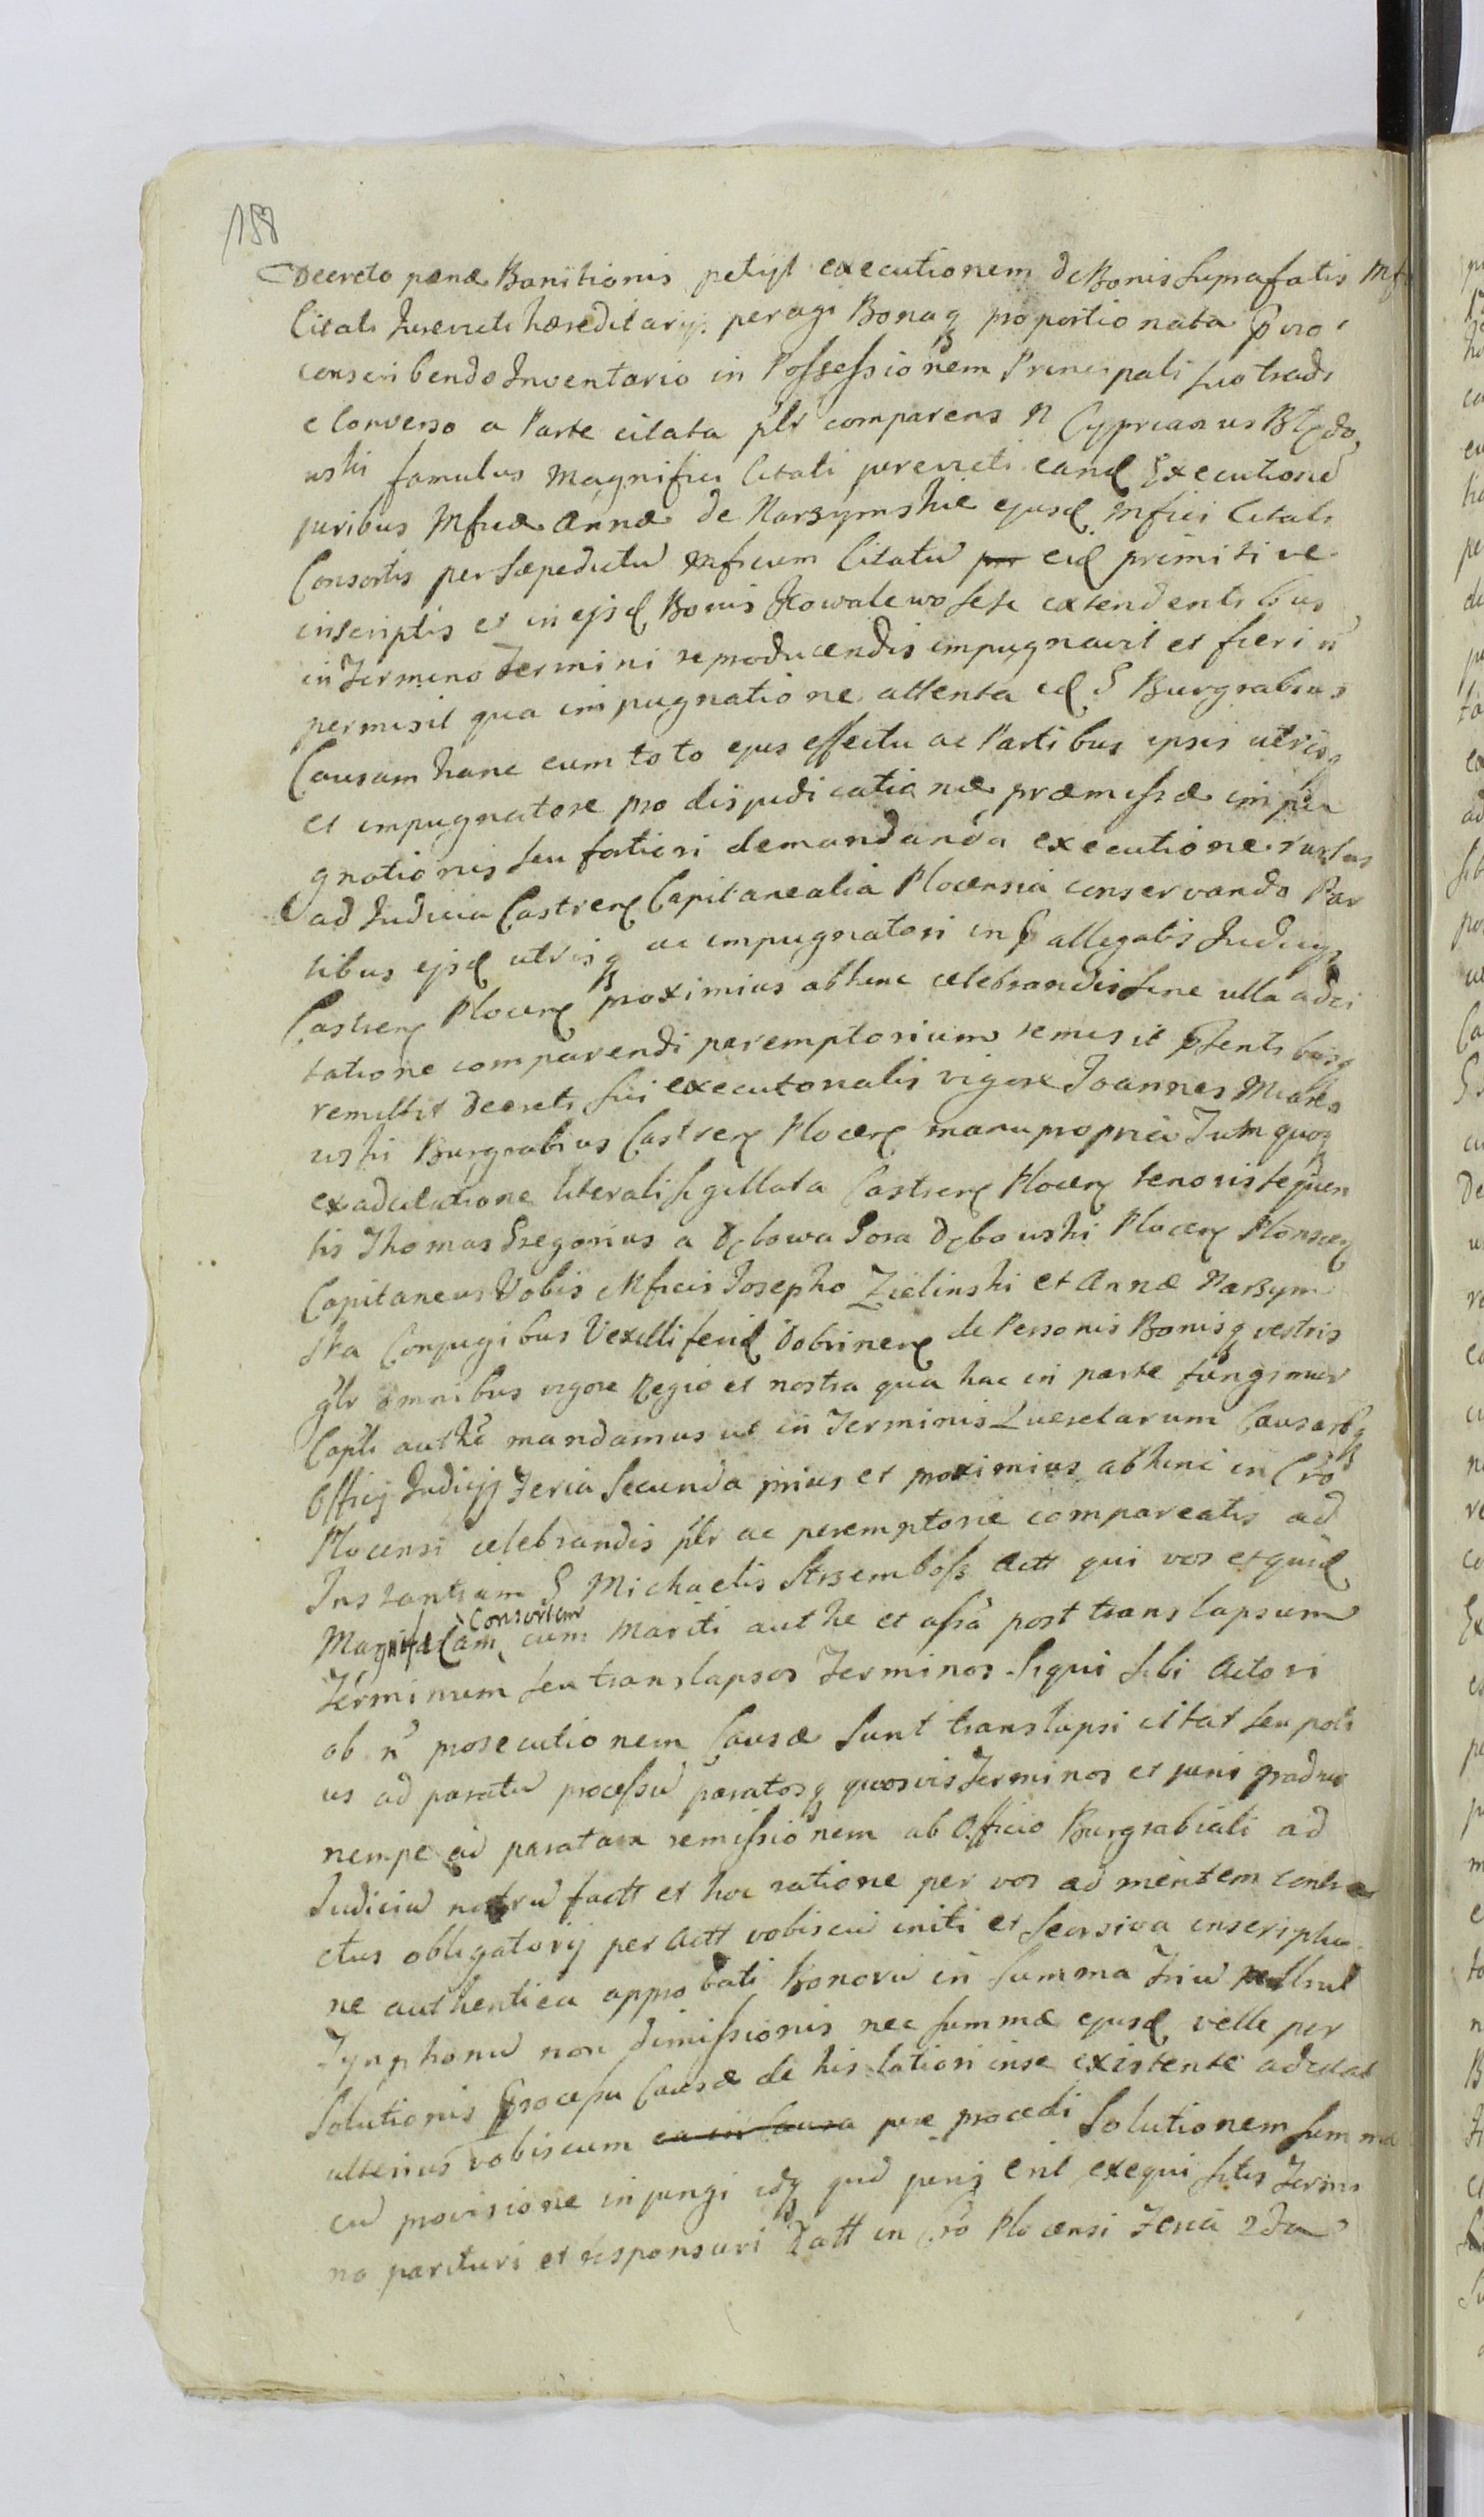 158
Decreto pœnæ Banitionis petijt executionem de Bonis suprafatis Mf
Citati Jurevicti hæreditarijs peragi Bonaq proportionata prvo
conscribendo Inventario in Possessionem Principali suo tradi
e Converso a Parte citata plr comparens N Cyprianus Blędo
wski famulus Magnifici Citati jurevicti eand Executione
juribus Mficæ Annæ de Narzymskie ejusd Mfici Citati
Consortis per sæpedictu Mficum Citatu eid primitive
inscriptis et in ejsd Bonis Kowalewo sese extendentibus
in Termino Termini reproducendis impugnavit et fieri n
permisit qua impugnatione attenta id G Burgrabius
Causam hanc cum toto ejus effectu ac Partibus ipsis utrisq
et impugnatore pro disjudicatione præmissæ impu
gnationis seu fortiori demandanda executione rursus
ad Judicia Castren Capitanealia Plocensia conservando Par
tibus ejsd utrisq ac impugnatori in p allegatis Judicijs
Castren Plocen proximius abhinc celebrandis sine ulla adci
tatione comparendi peremptorium remisit Psentibusq
remittit Decreti sui executorialis vigore Joannes Miałko
wski Burgrabius Castren Plocen manu propria Tum quoq
ex adcitatione literali sigillata Castren Plocen tenoris sequen
tis Thomas Gregorius a Dębowa Gora Dębowski Plocen Plonscen
Capitaneus Vobis Mficis Josepho Zielinski et Annæ Narzym
ska Conjugibus Vexilliferid Dobrinen de Personis Bonisq vestris
glr omnibus vigore Regio et nostra qua hac in parte fungimur
Capli authe mandamus ut in Terminis Querelarum Causarq
Officij Judicijs Feria Secunda prius et proximius abhinc in Cro
Plocensi celebrandis plr ac peremptorie compareatis ad
Instantiam G Michaelis Strzembosz Actt qui vos et quid
Magnifcam Consortem cum Mariti authe et assa post translapsum
Terminum seu translapsos Terminos siqui sibi Actori
ob n prosecutionem Causæ sunt translapsi citat seu poti
us ad paratu processu paratosq quosvis Terminos et juris gradus
nempe ad paratam remissionem ab Officio Burgrabiali ad
Judiciu nostru factt et hoc ratione per vos ad mentem contra
ctus obligatorij per Actt vobiscu initi et seorsiva inscriptio
ne authentica approbati Bonoru in Summa Triu Mill
Tynphonu non dimissionis nec summæ ejusd velle per
solutionis Processu Causæ de his latiori in se existente adcitat
ulterius vobiscum ea in Causa jure procedi Solutionem Summæ
cu provisione injungi idq qud juris erit exequi sitis Termi
no parituri et responsuri Datt in Cro Plocensi Feria 2da